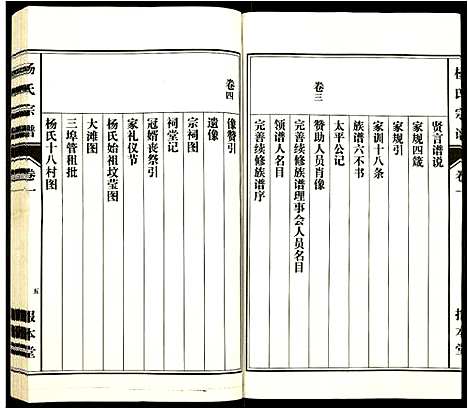 杨氏宗谱
卷一
贤言谱说
家规四箴
家规引
家训十八条
族谱六不书
太平公记
卷三
赞助人员肖像
完善续修族谱理事会人员名目
领谱人名目
完善续修族谱序
卷四
像赞引
遗像
宗祠图
祠堂记
冠婚丧祭引
家礼仪节
杨氏始祖坟茔图
大滩图
三埠管租批
杨氏十八村图
杨氏宗谱
卷一
五
报本堂